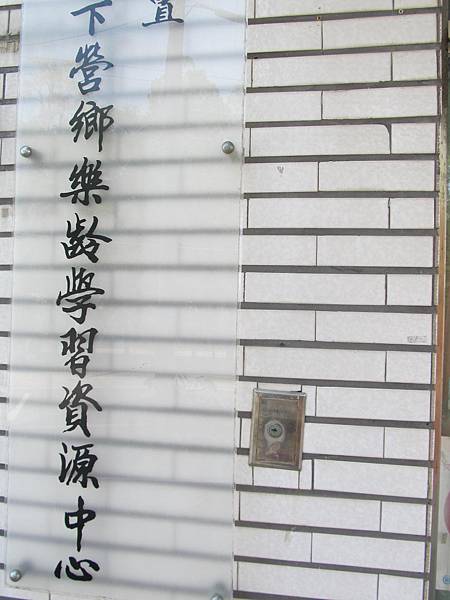 置
下營鄉樂齡學習資源中心